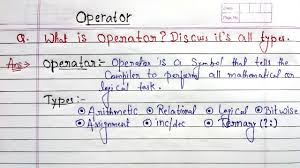 Operator
Q. What is Operator? Discuss it's all types.
Ans→ Operator:- Operator is a Symbol that tells the
Compiler to perform all mathematical or
logical task.
Types:-
Arithmetic Relational Logical Bitwise
Assignment inc/dec Ternary (?:)